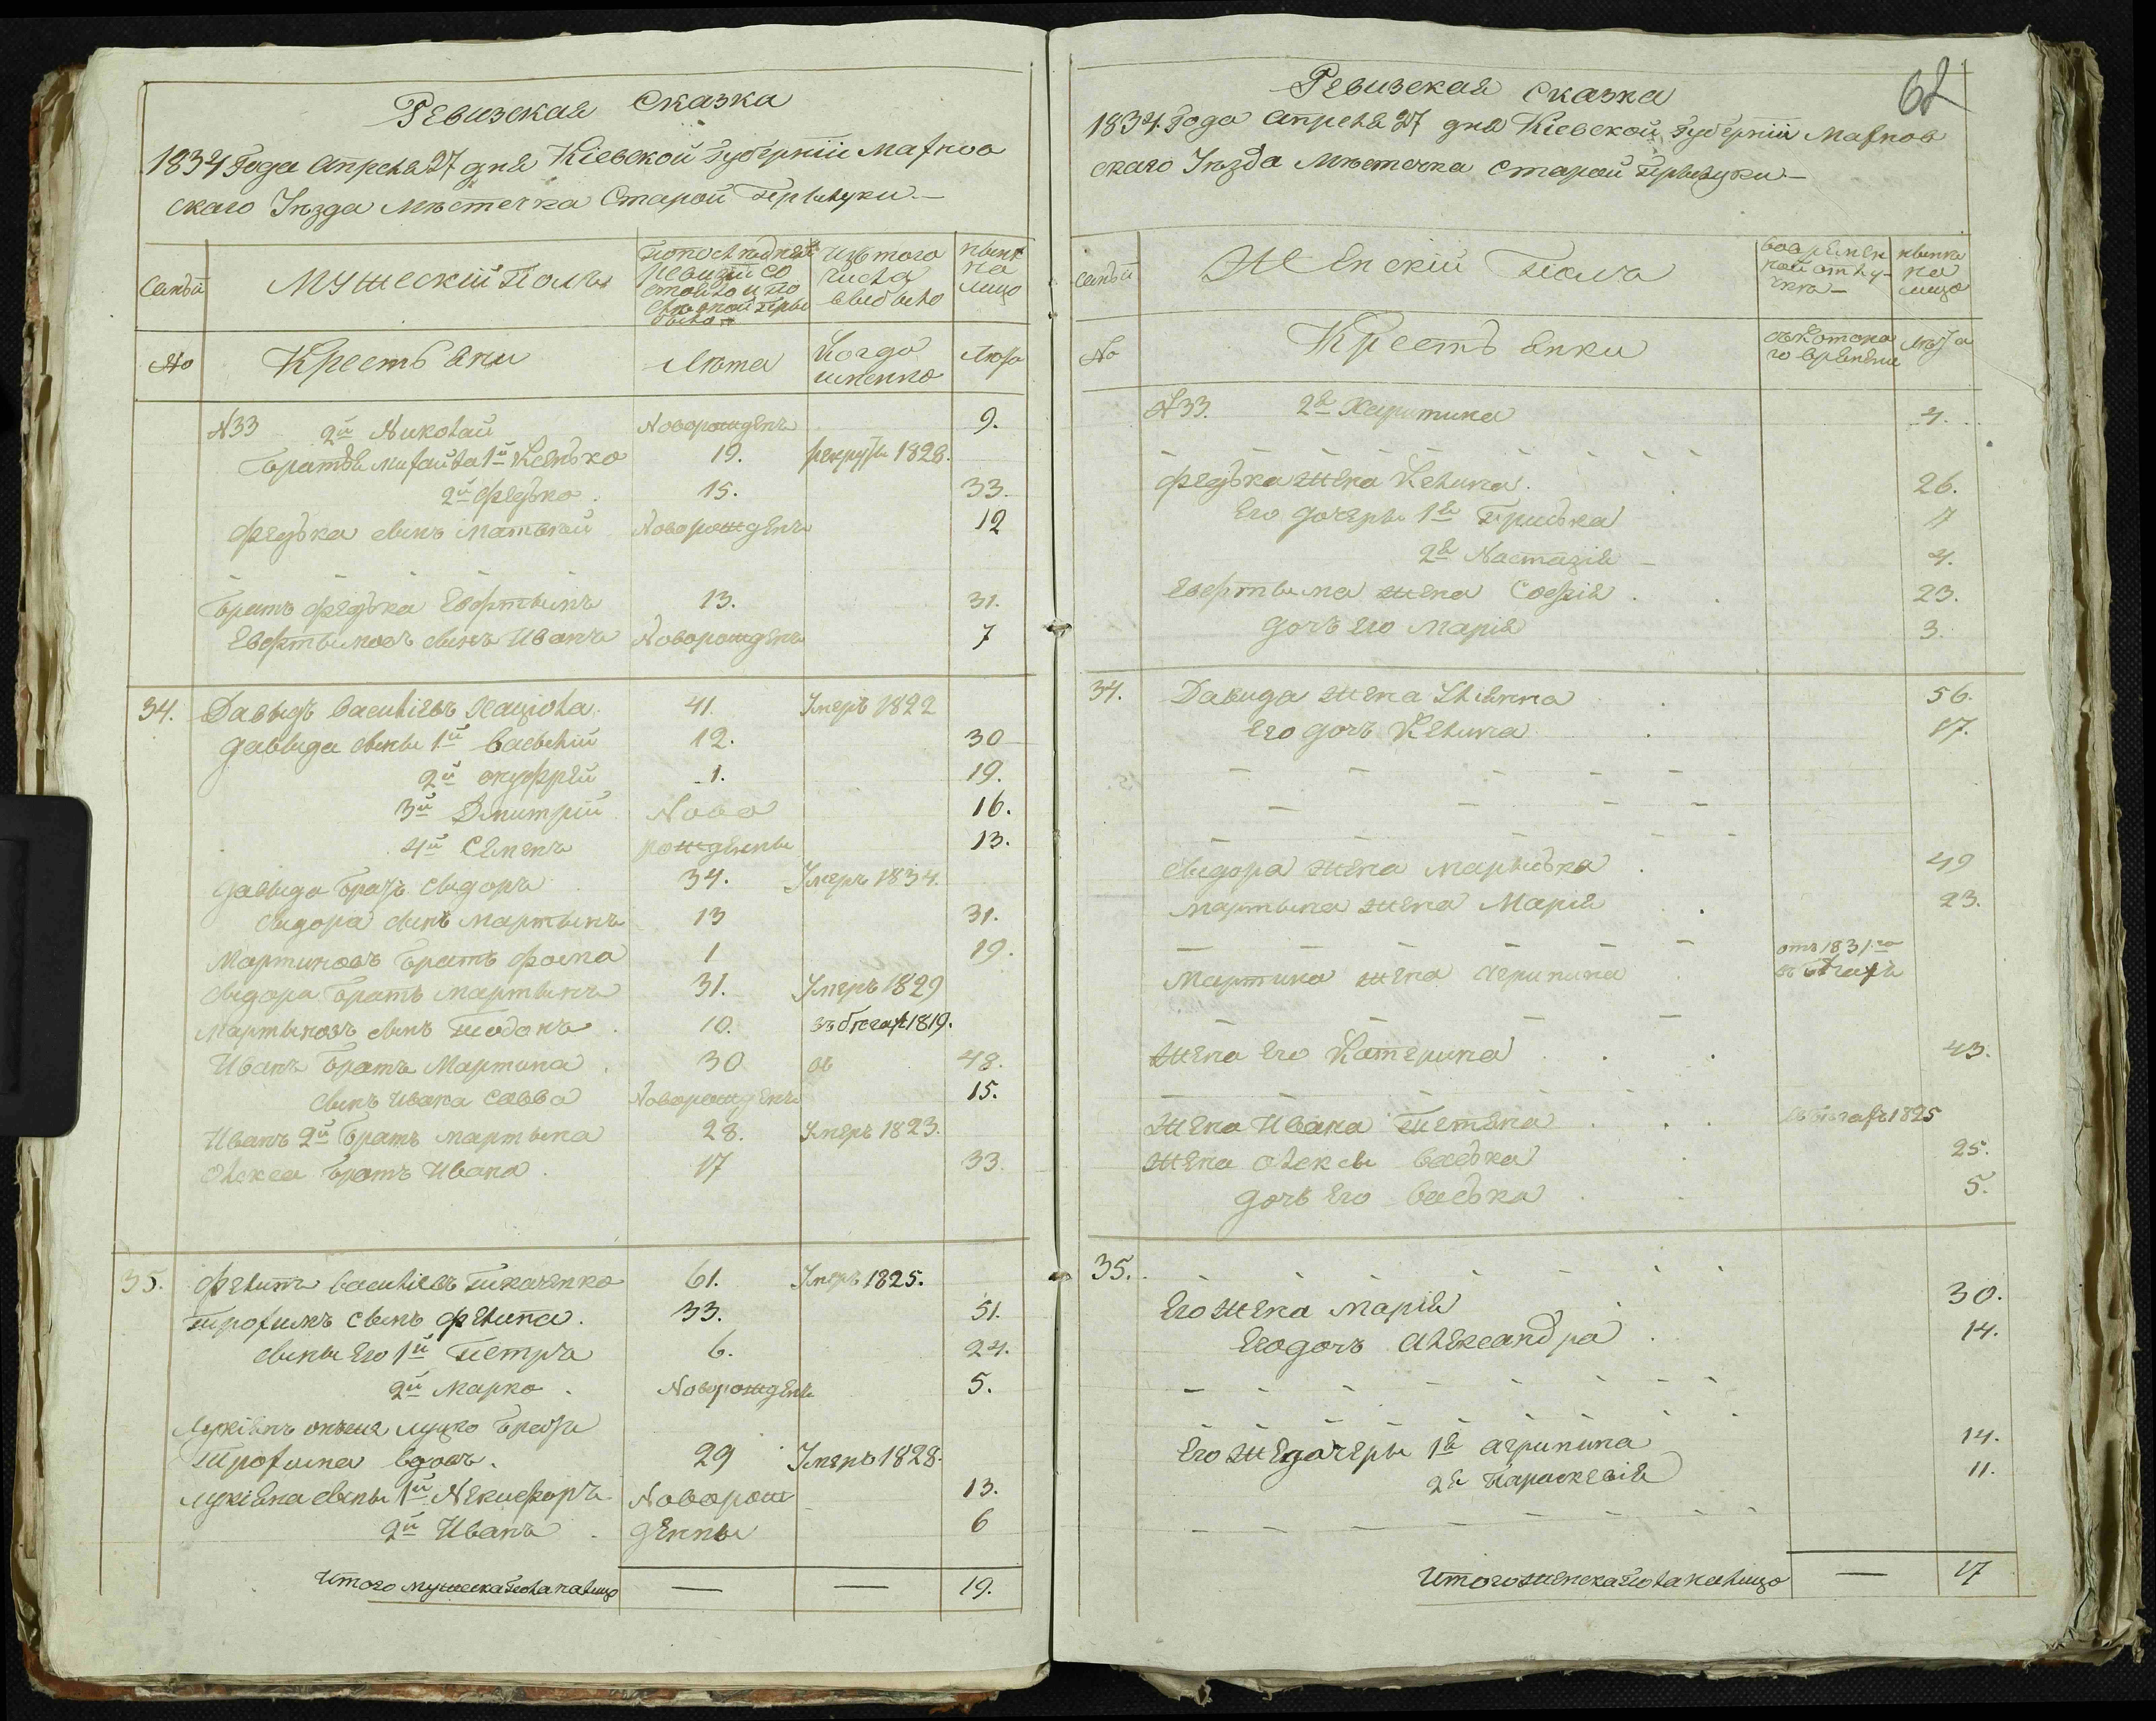 Ревизская Сказка
1834 Года Апреля 27 дня Кіевской Губерніи Махнов
скаго Уезда Местечка Старой Прилуки.—
Семьи
Мужескій Полъ
По последней ревизіи состояло и после оной прибыло
Изъ того числа выбыло
Ныне на лицо
No
Крестьяне
Лета
Когда имянно
Лета
N33 2й Николай Новорожденъ 9.
Братья Михайла 1й Ксенько 19. рекрутъ 1828.
2й Федько. 15. 33.
Федька сынъ Матвей Новорожденъ 12
Братъ Федька Евфтымъ 13. 31.
Евфтымовъ сынъ Иванъ Новорожденъ 7
34. Давыдъ Васильевъ 41. Умеръ 1822
Давыда сыны 1й Василій 12. 30
2й Онуфрей 1. 19.
3й Дмитрій Ново 16.
4й Семенъ рожденны 13.
Давида братъ Сидоръ 34. Умеръ 1834.
Сидора сынъ Мартынъ 13 31.
Мартиновъ братъ Фома 1 19.
Сидора братъ Мартынъ 31. Умеръ 1829
Мартыновъ сынъ 10. въ бегах 1819.
Иванъ братъ Мартина. 30 48.
сынъ Ивана Савва Новорожденъ 15.
Иванъ 2й братъ Мартына 28. Умеръ 1823.
Олекса братъ Ивана. 17 33.
35. Филипъ Васильевъ Ткаченко 61. Умеръ 1825.
Трофимъ сынъ Филипа. 33. 51.
сыны Его 1й Петръ 6. 24.
2й Марко. Новорожденъ 5.
Лукіянъ онже Луцко братъ
Трофима вдовъ. 29 Умеръ 1828.
Лукіяна сыны 1й Никифоръ Новорож 13.
2й Иванъ. денны 6
Итого мужеска пола на лицо — — 19.
62
Ревизская Сказка
1834. Года Апреля 27 дня Кіевской Губерніи Махнов
скаго Уезда Местечка Старой Прилуки.—
Семьи
Женскій Полъ
Во временной отлучке—
Ныне на лицо
No
Крестьянки
Съ котораго времени
Лета
N33. 2я Харитина 4.
Федька жена Келина. 26.
Его дочери 1я Приська 7
2я Настазія 4.
Евфтыма жена Софія. 23.
дочь его Марія 3.
34. Давида жена Улиянна 56.
Его дочь Келина 17.
Сидора жена Марыська. 49
Мартына жена Марія 23.
Мартина жена Агрипина отъ 1831го въ бегахъ
жена Его Катерина 43.
жена Ивана Тетяна въ бегахъ 1825
жена Олексы Васька 25.
дочь Его Васька 5.
35.
Его жена Марія 30.
Его дочь Александра 14.
Его же дочери 1я Агрипина 14.
2я Параскевія 11.
Итого женска пола на лицо — 17